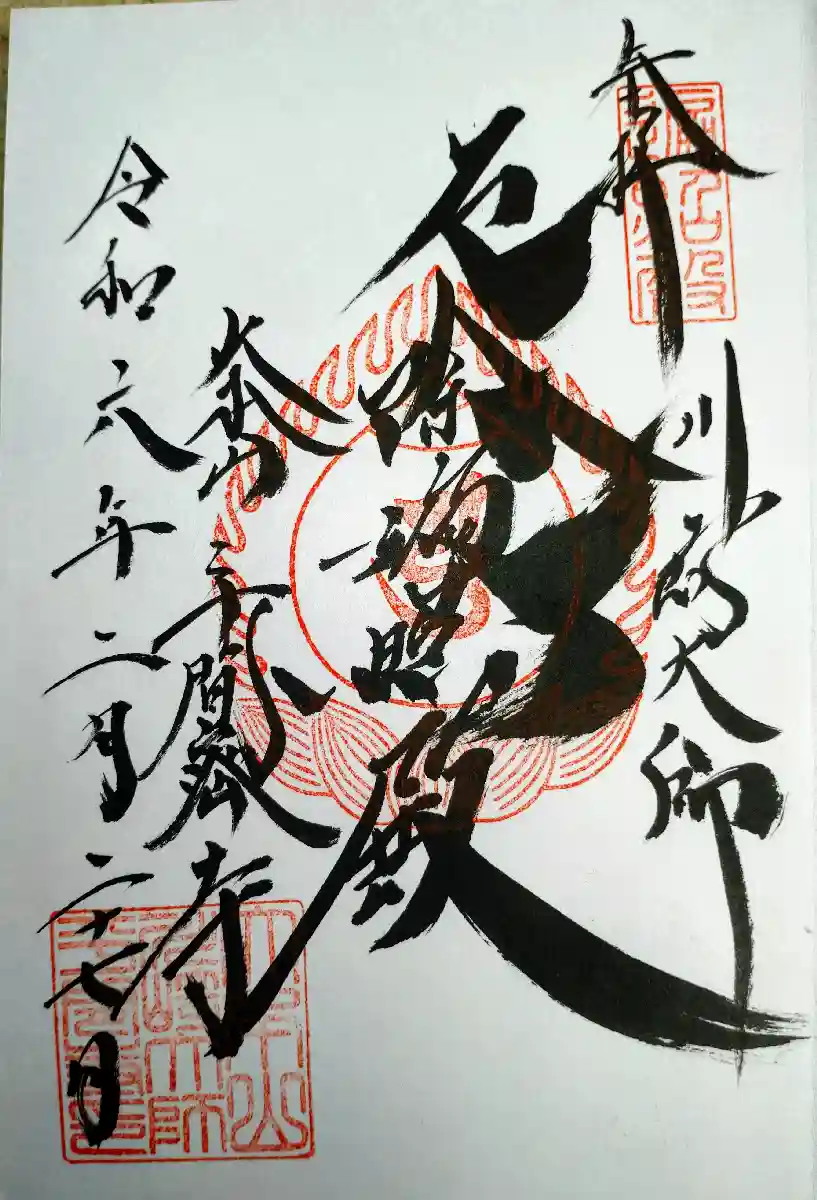 奉拝 川崎大師
厄除遍照殿
大本山 平間寺
令和六年二月二十七日